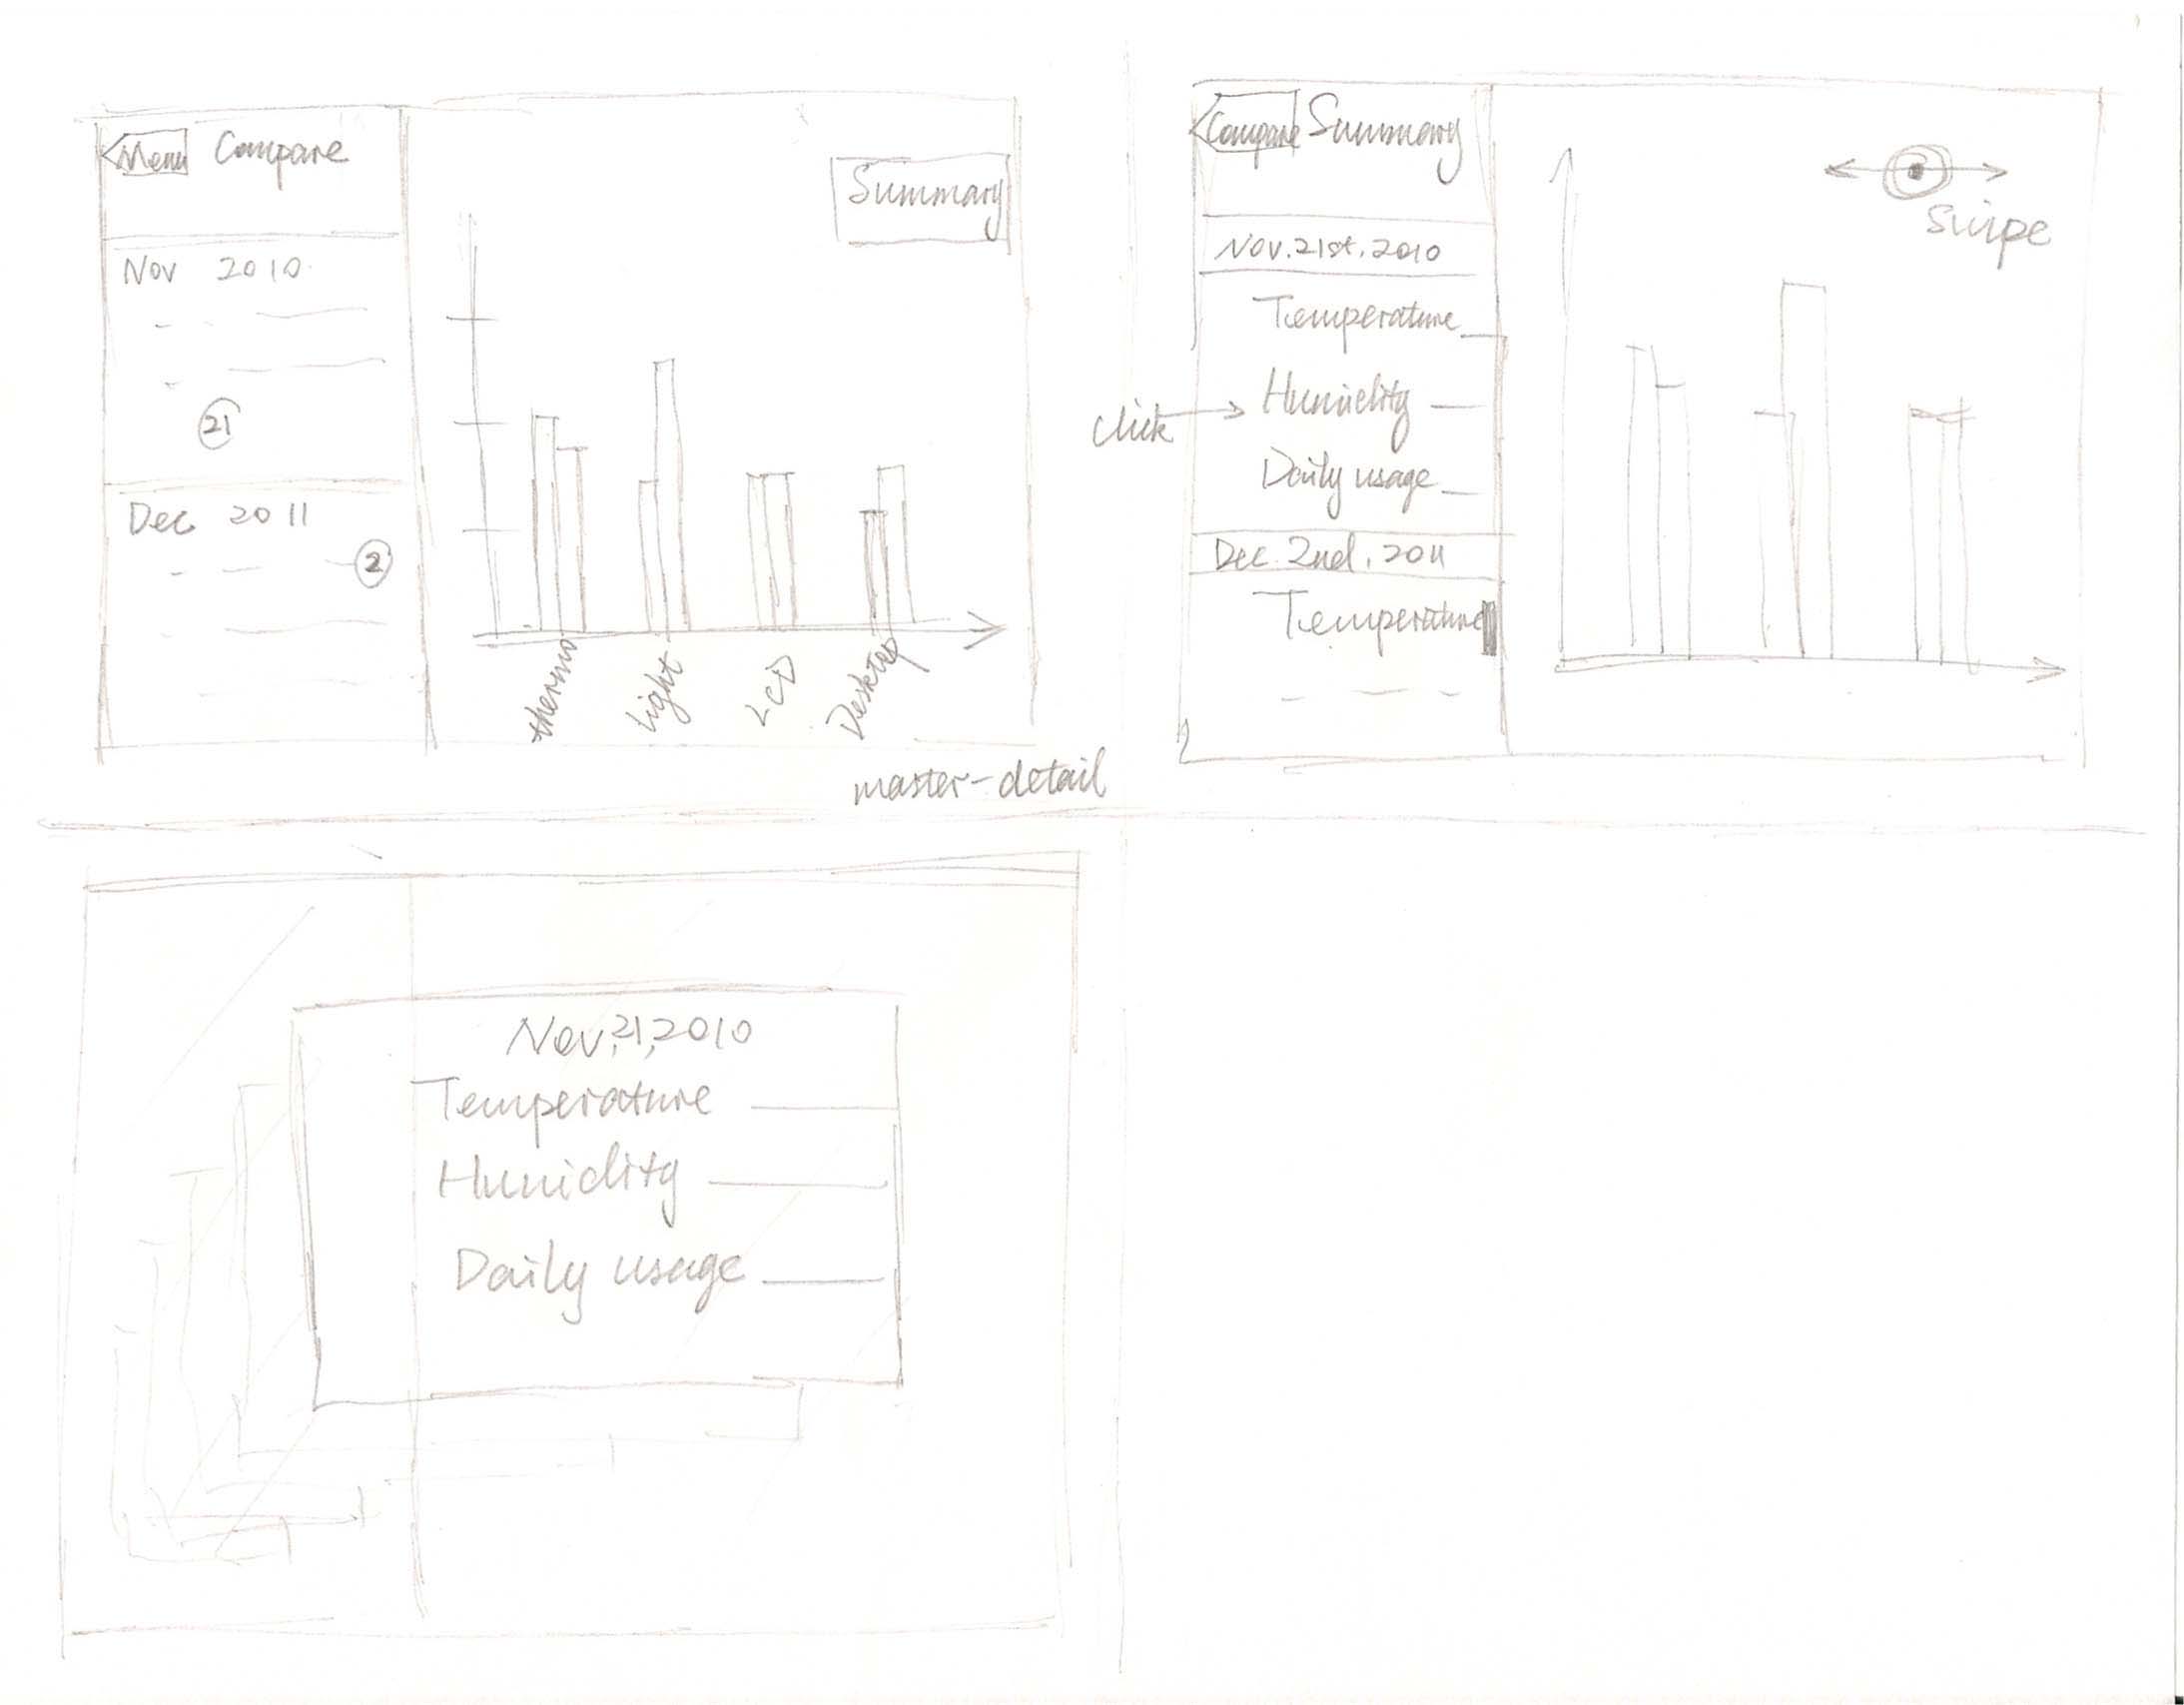 Menu Compare
Summary
Nov 2010
21
Dec 2011
2
thermo
Light
LCD
Desktop
master-detail
Compare Summary
swipe
Nov. 21st, 2010
Temperature
click
Humidity
Daily usage
Dec. 2nd, 2011
Temperature
Nov, 21, 2010
Temperature
Humidity
Daily usage